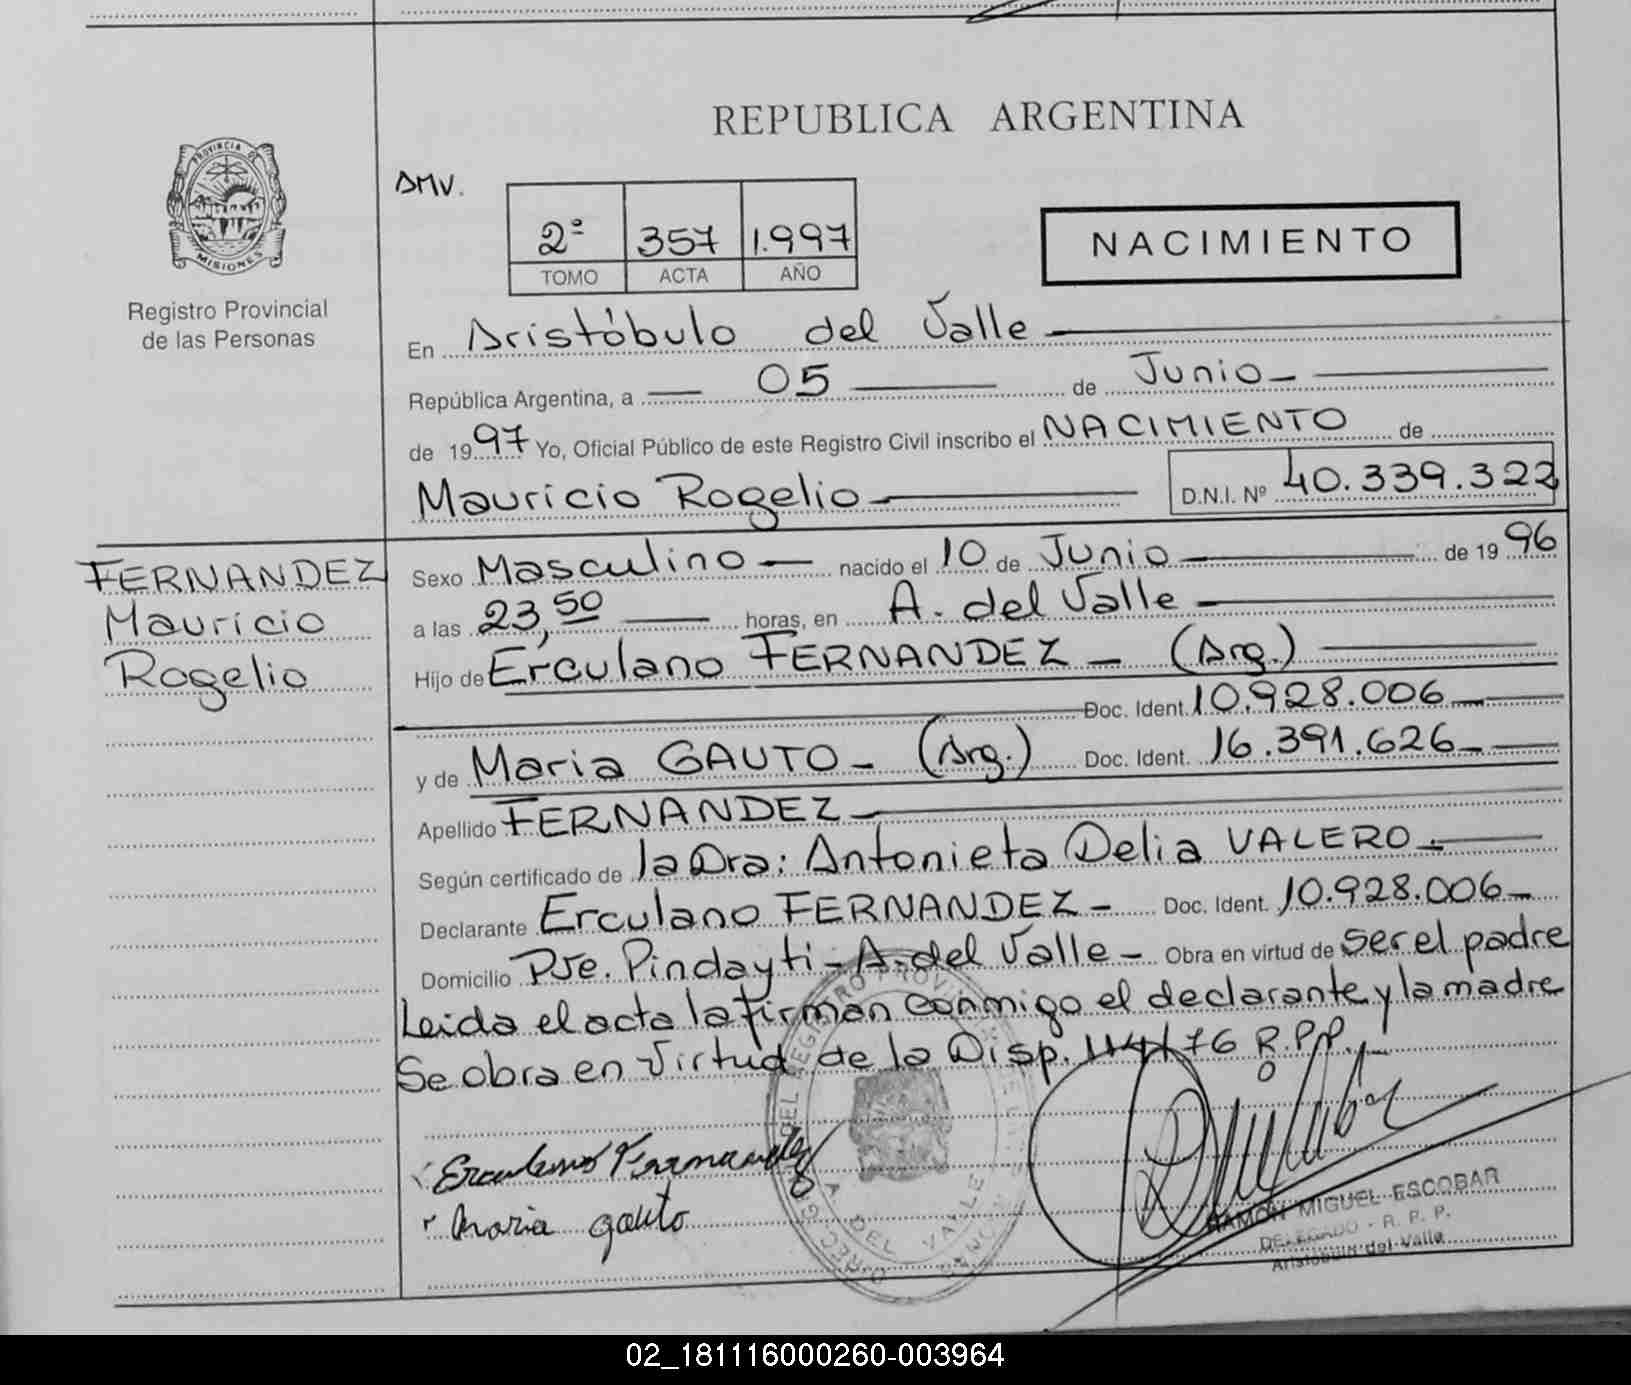 REPUBLICA ARGENTINA
PROVINCIA DE
MISIONES
Registro Provincial
de las Personas
AMV.
2º 357 1.997
TOMO ACTA AÑO
NACIMIENTO
En Aristóbulo del Valle
República Argentina, a 05 de Junio
de 1997 Yo, Oficial Público de este Registro Civil inscribo el NACIMIENTO de
Mauricio Rogelio D.N.I. Nº 40.339.322
FERNANDEZ
Mauricio
Rogelio
Sexo Masculino nacido el 10 de Junio de 1996
a las 23,50 horas, en A. del Valle
Hijo de Erculano FERNANDEZ - (Arg.)
Doc. Ident. 10.928.006
y de Maria GAUTO - (Arg.) Doc. Ident. 16.391.626
Apellido FERNANDEZ
Según certificado de la Dra: Antonieta Delia VALERO.
Declarante Erculano FERNANDEZ - Doc. Ident. 10.928.006
Domicilio Pje. Pindayti - A. del Valle - Obra en virtud de ser el padre
Leida el acta la firman conmigo el declarante y la madre
Se obra en virtud de la Disp. 114/76 R.P.P.
Erculano Fernandez
Maria gauto
DEL VALLE
RAMON MIGUEL ESCOBAR
DELEGADO - R. P. P.
Aristóbulo del Valle
02_181116000260-003964